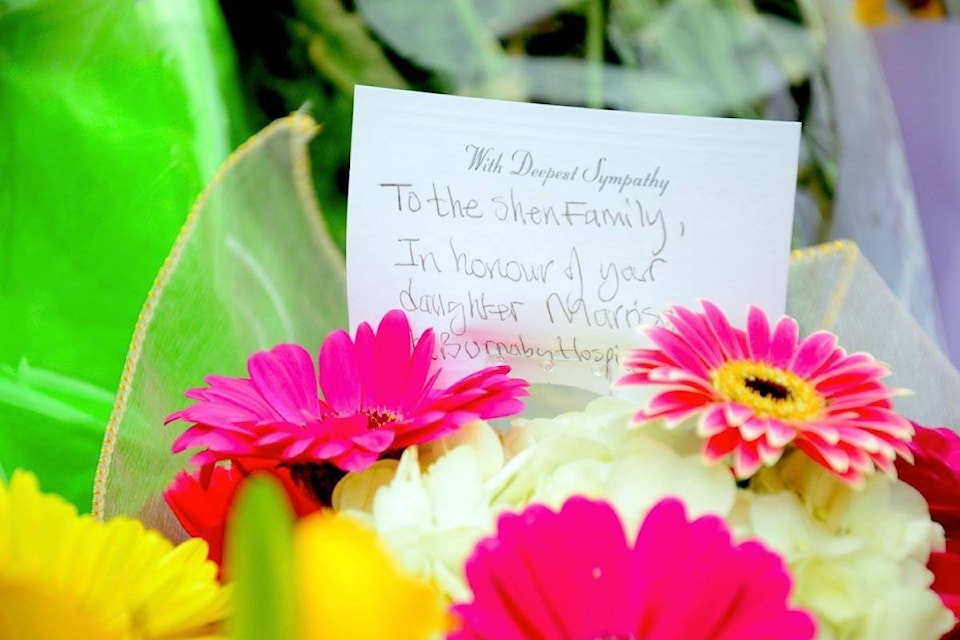 With Deepest Sympathy
To the Shen Family,
In honour of your
daughter
Burnaby